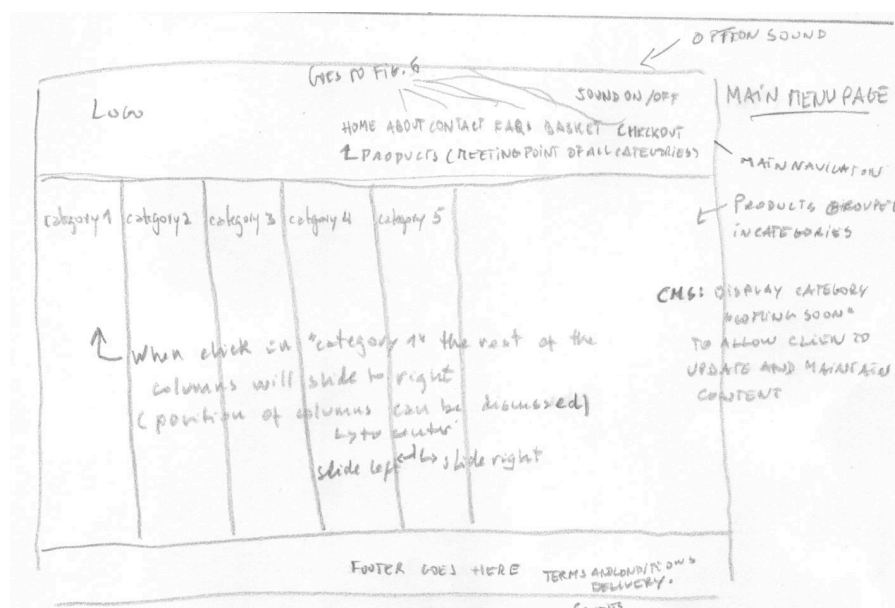 OPTION SOUND
GOES TO FIG. 6
SOUND ON/OFF
MAIN MENU PAGE
LOGO
HOME ABOUT CONTACT FAQS BASKET CHECKOUT
PRODUCTS (MEETING POINT OF ALL CATEGORIES)
MAIN NAVIGATION
PRODUCTS GROUPED
IN CATEGORIES
category 1 category 2 category 3 category 4 category 5
CMS: DISPLAY CATEGORY
"COMING SOON"
TO ALLOW CLIENT TO
UPDATE AND MAINTAIN
CONTENT
When click in "category 1" the rest of the
columns will slide to right
(position of columns can be discussed)
to center
slide left slide right
FOOTER GOES HERE TERMS AND CONDITIONS
DELIVERY.